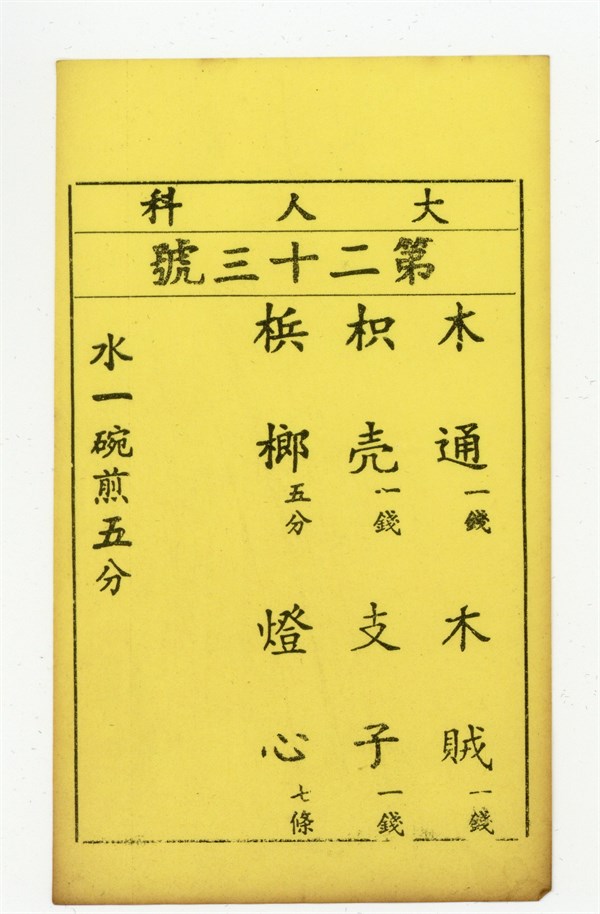 大人科
第二十三號
木通一錢 木賊一錢
枳壳一錢 支子一錢
梹榔五分 燈心七條
水一碗煎五分